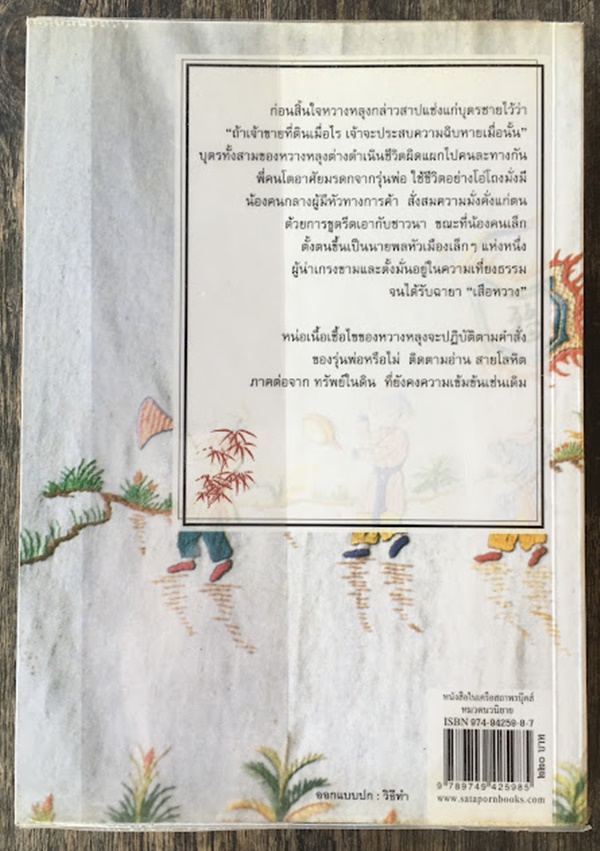 ก่อนสิ้นใจหวางหลุงกล่าวสาปแช่งแก่บุตรชายไว้ว่า
“ถ้าเจ้าขายที่ดินเมื่อไร เจ้าจะประสบความฉิบหายเมื่อนั้น”
บุตรทั้งสามของหวางหลุงต่างดำเนินชีวิตผิดแผกไปคนละทางกัน
พี่คนโตอาศัยมรดกจากรุ่นพ่อ ใช้ชีวิตอย่างโอ่โถงมั่งมี
น้องคนกลางผู้มีหัวทางการค้า สั่งสมความมั่งคั่งแก่ตน
ด้วยการขูดรีดเอากับชาวนา ขณะที่น้องคนเล็ก
ตั้งตนขึ้นเป็นนายพลหัวเมืองเล็กๆ แห่งหนึ่ง
ผู้น่าเกรงขามและตั้งมั่นอยู่ในความเที่ยงธรรม
จนได้รับฉายา “เสือหวาง”
หน่อเนื้อเชื้อไขของหวางหลุงจะปฏิบัติตามคำสั่ง
ของรุ่นพ่อหรือไม่ ติดตามอ่าน สายโลหิต
ภาคต่อจาก ทรัพย์ในดิน ที่ยังคงความเข้มข้นเช่นเดิม
หนังสือในเครือสถาพรบุ๊คส์
หมวดนวนิยาย
ISBN 974-94259-8-7
๒๒๐ บาท
9789749425985
www.satapornbooks.com
ออกแบบปก : วิธีทำ